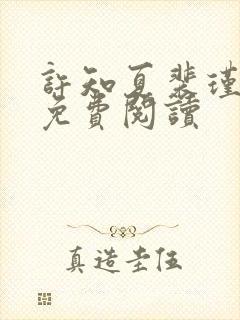 許知夏裴瑾
免費閱讀
真造圭伍